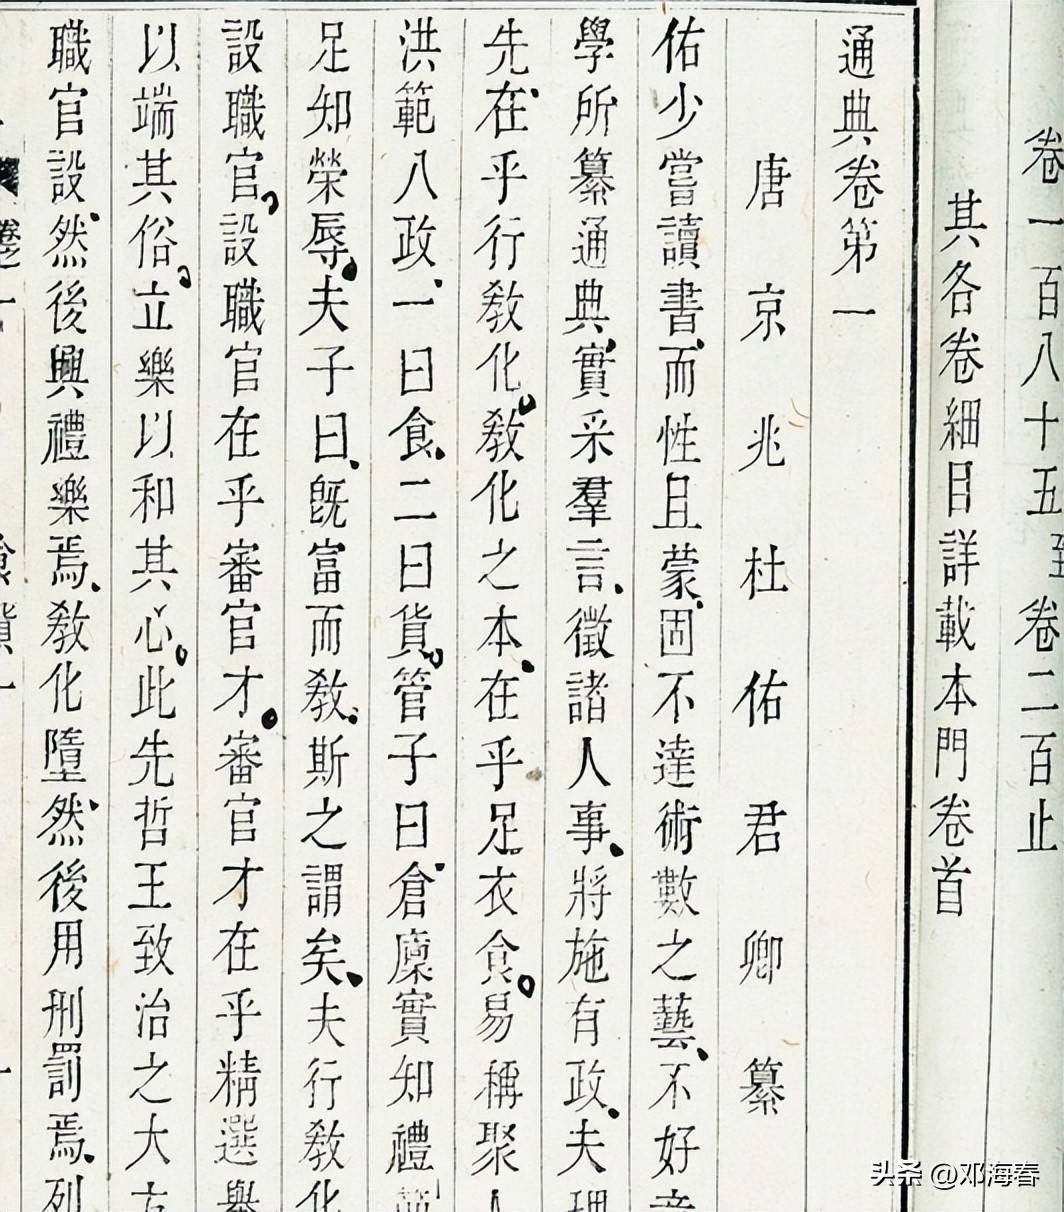 卷一百八十五至卷二百止
其各卷細目詳載本門卷首
通典卷第一
唐京兆杜佑君卿纂
佑少嘗讀書而性且蒙固不達術數之藝不好
學所纂通典實采羣言徵諸人事將施有政夫
先在乎行教化教化之本在乎足衣食易稱聚
洪範八政一曰食二曰貨管子曰倉廪實知禮
足知榮辱夫子曰既富而教斯之謂矣夫行教
設職官設職官在乎審官才審官才在乎精選
以端其俗立樂以和其心此先哲王致治之大
職官設然後興禮樂焉教化墮然後用刑罰焉列
头条 @邓海春